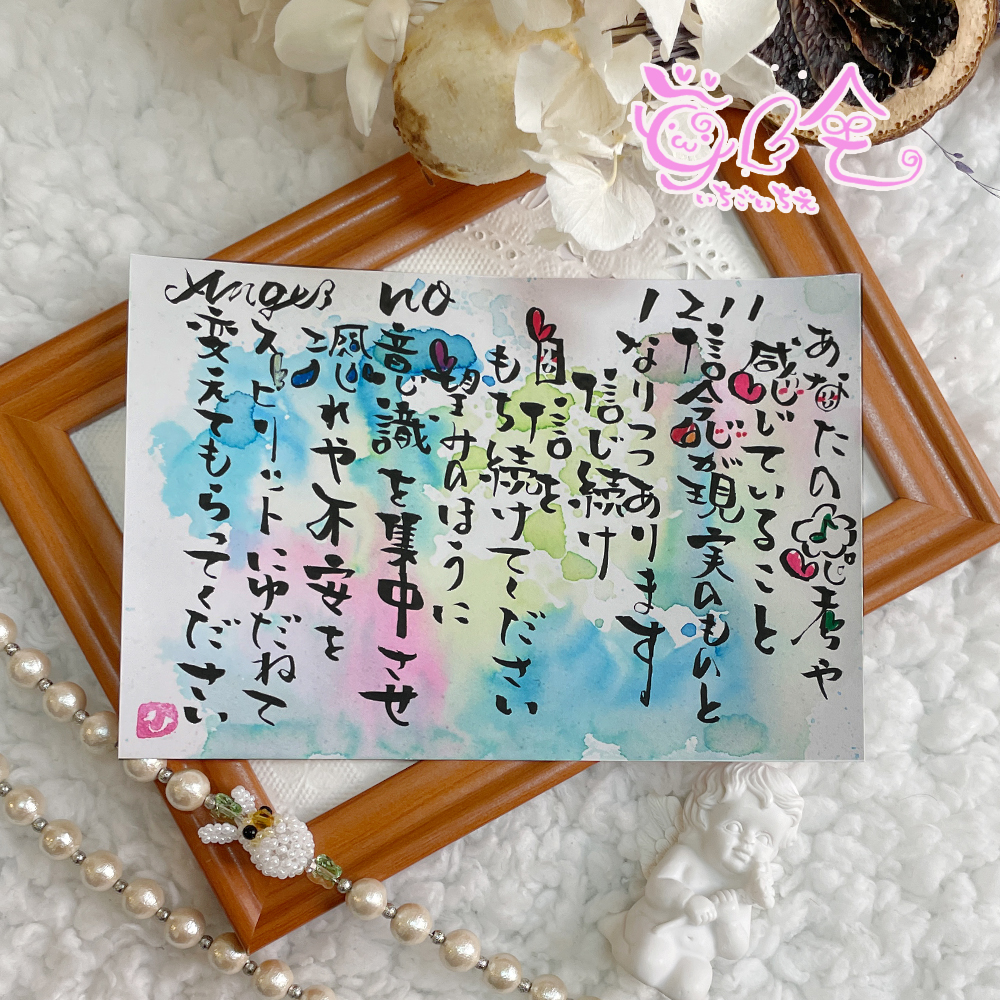 Angel no 1211
あなたの思考や
感じていること
信念が現実のものと
なりつつあります
信じ続け
自信を
もち続けてください
望みのほうに
意識を集中させ
恐れや不安を
スピリットにゆだねて
変えてもらってください
いちごいちえ